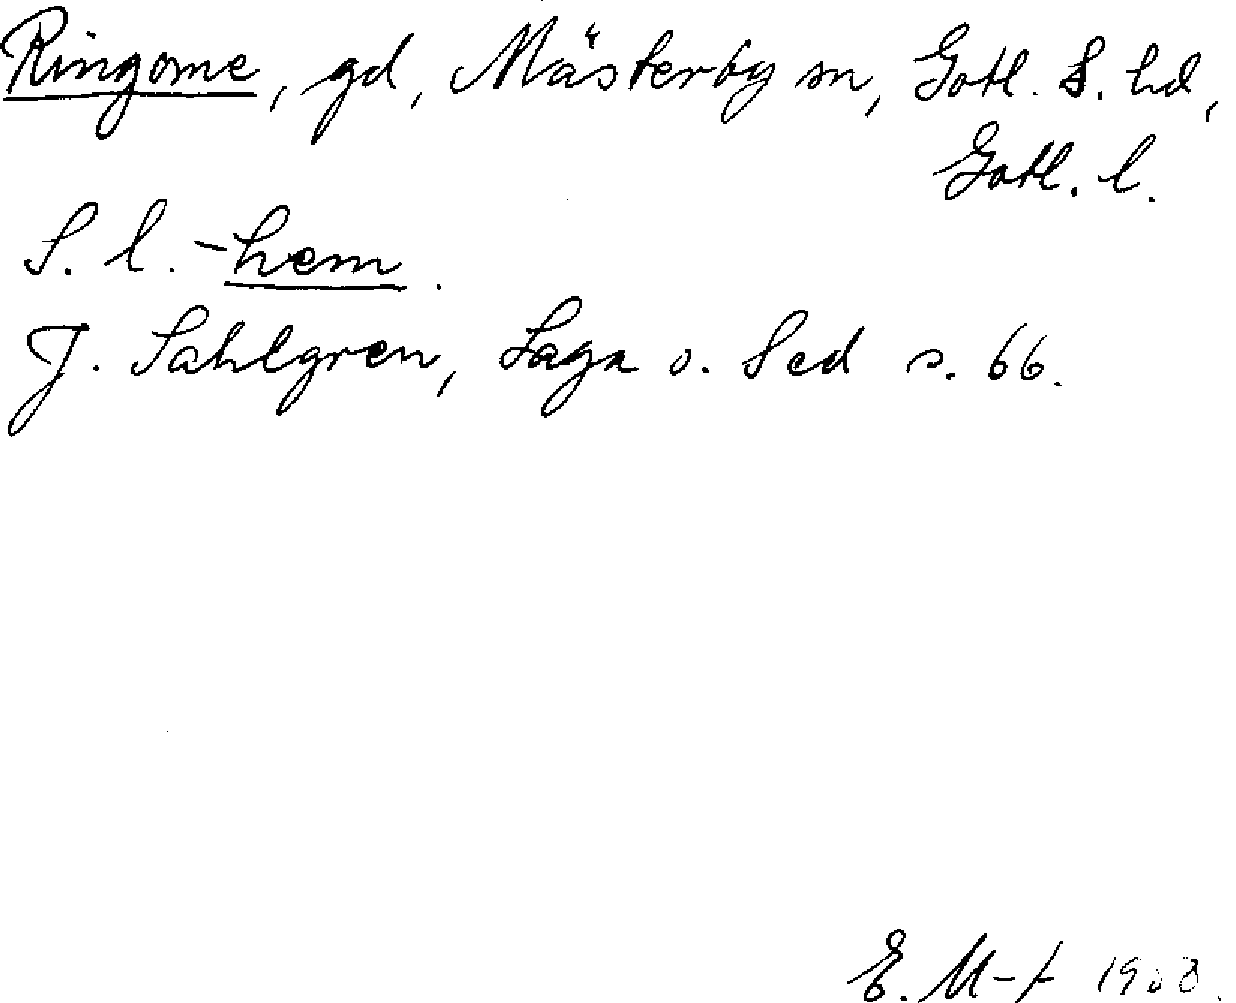 Ringome, gd, Mästerby sn, Gotl. S. hd,
Gotl. l.
S. l. -hem.
J. Sahlgren, Saga o. Sed s. 66.
E. M-t